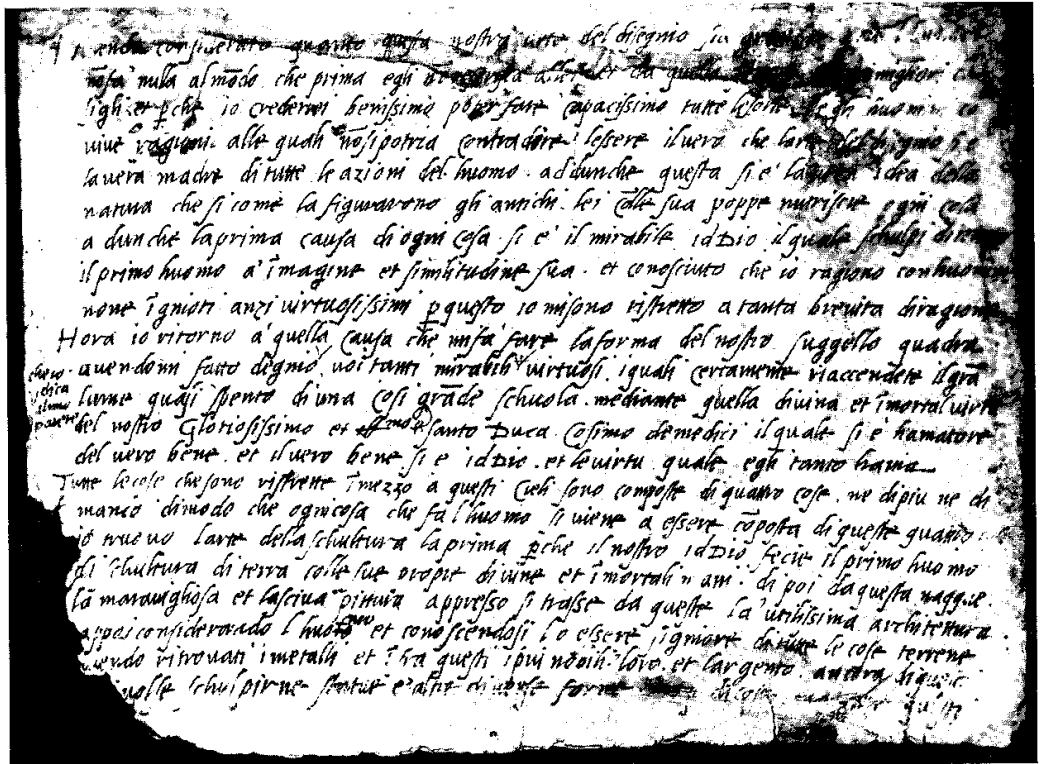 considerato quanto questa nostra arte del disegnio sia
nõ fa nulla al mõdo che prima egli
sigli et p̃che io crederrei benissimo poter fare capacissimo tutte le sorte degli huomini co
vive ragioni alle quali nõ si potria contradire lessere il vero che larte del disegnio si e
la vera madre di tutte le azioni del huomo adunche questa si e la vera Idea della
natura che si come la figurarono gli antichi lei colle sua poppe nutriscie ogni cosa
adunche la prima causa di ogni cosa si e' il mirabile idDio il quale schulpi di
il primo huomo a' ĩmagine et similitudine sua et conosciuto che io ragiono con huomini
none ĩgnioti anzi virtuosissimi p̃ questo io mi sono ristretto a tanta brevita di ragione
Hora io ritorno a' quella causa che mi fa' fare la forma del nostro suggello quadra
avendomi fatto degnio voi tanti mirabili virtuosi i quali certamente riaccendete il grã
che io
dica
il mio
parere
lume quasi spento di una cosi grãde schuola mediante quella divina et ĩmortal virtu
del nostro Gloriosissimo et santo Duca Cosimo de medici il quale si e' hamatore
del vero bene et il vero bene si e idDio et le virtu quale egli tanto hama
Tutte le cose che sono ristrette ĩ mezzo a questi Cieli sono composte di quattro cose ne di piu ne di
manco di modo che ogni cosa che fa l huomo si viene a essere cõposta di queste quattro
io truovo larte della schultura la prima p̃che il nostro idDio fecie il primo huomo
di schultura di terra colle sue propie divine et ĩmortali mani di poi da questa nacque
la maravighosa et lasciva pittura appresso si trasse da queste la' utilissima architettura
appoi considerando l huomo et conoscendosi lo essere signiore di tutte le cose terrene
avendo ritrovati i metalli et ĩ fra questi i piu nobili loro et largento ancora di queste
volle schulpirne statue e altre diverse forme